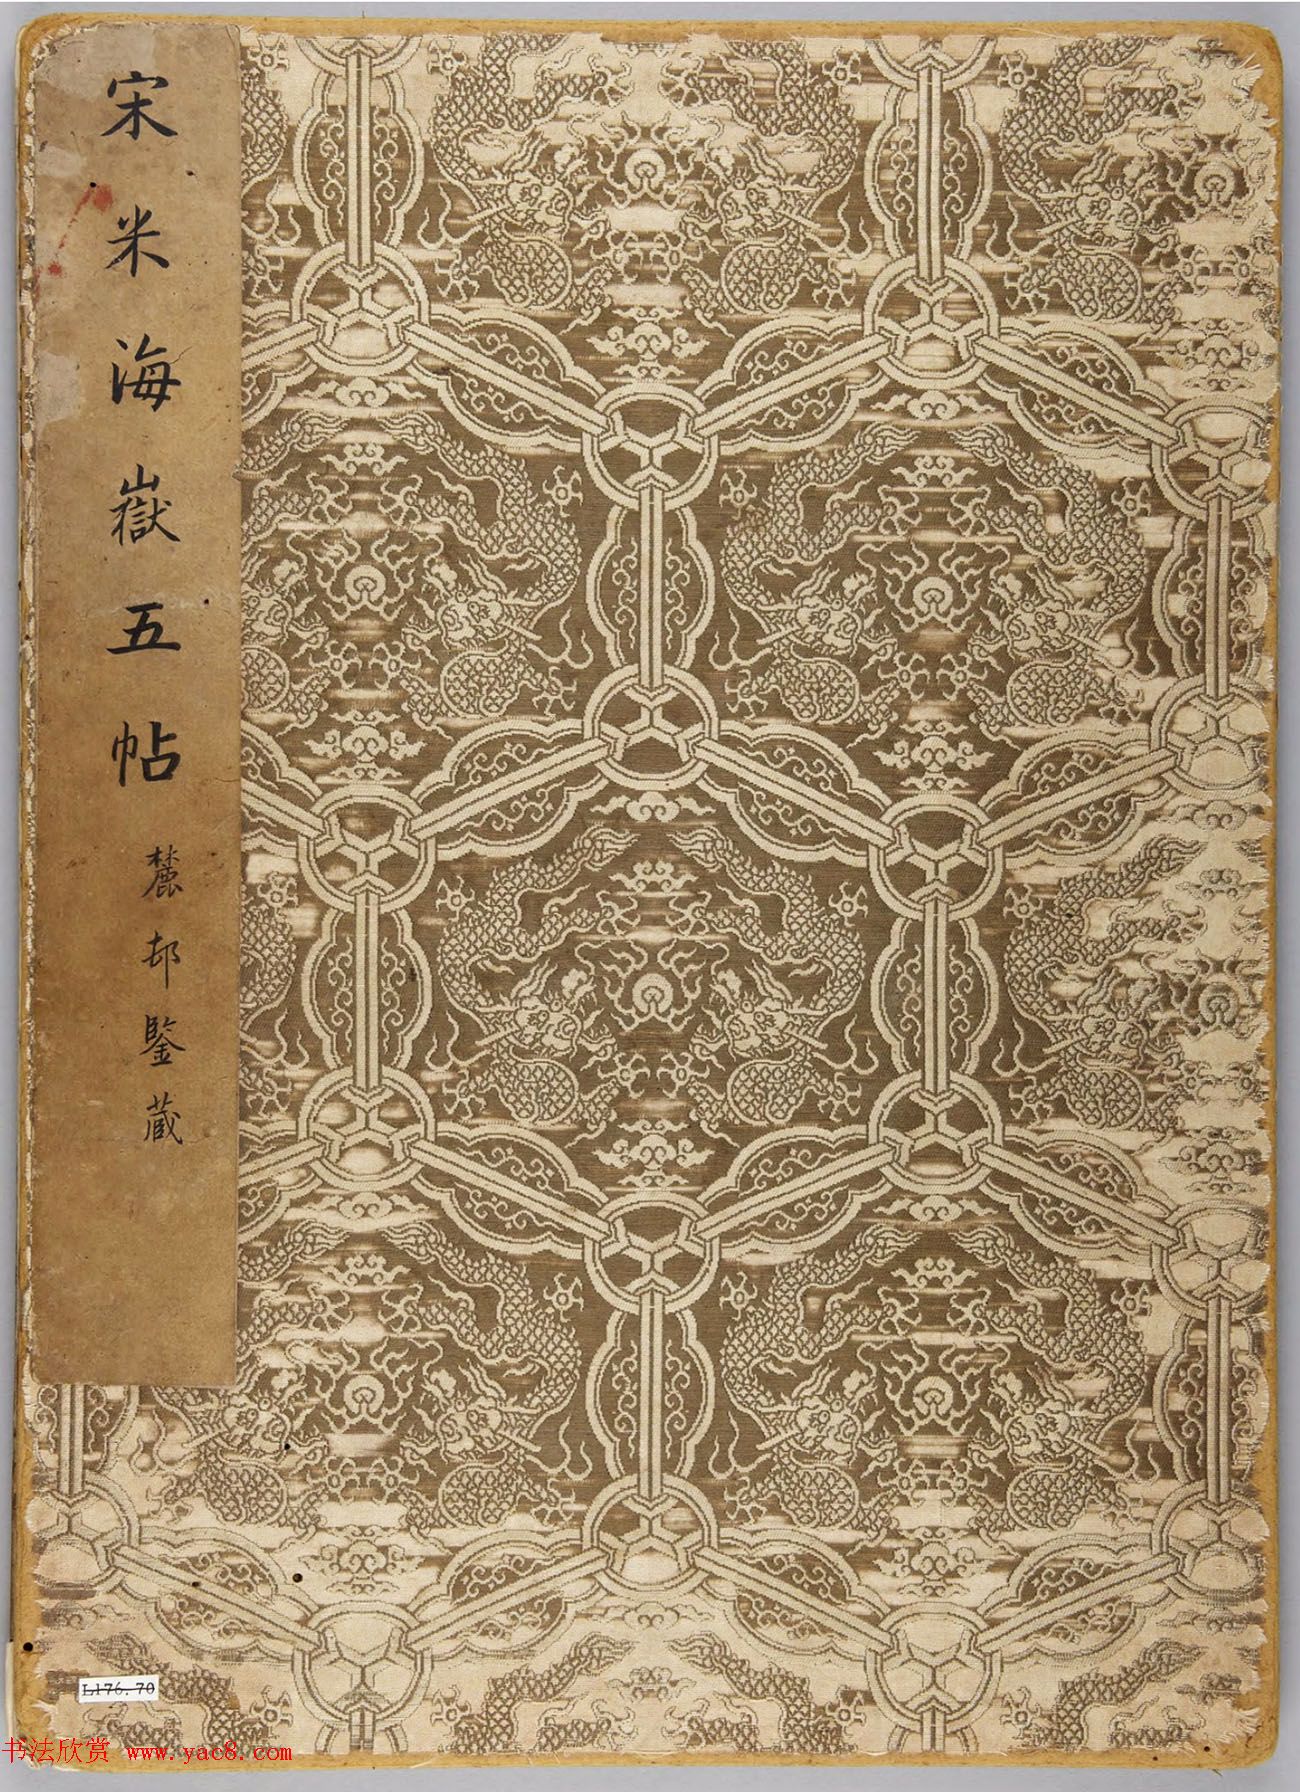 宋米海嶽五帖
麓邨鑒蔵
L176.70
书法欣赏 www.yac8.com